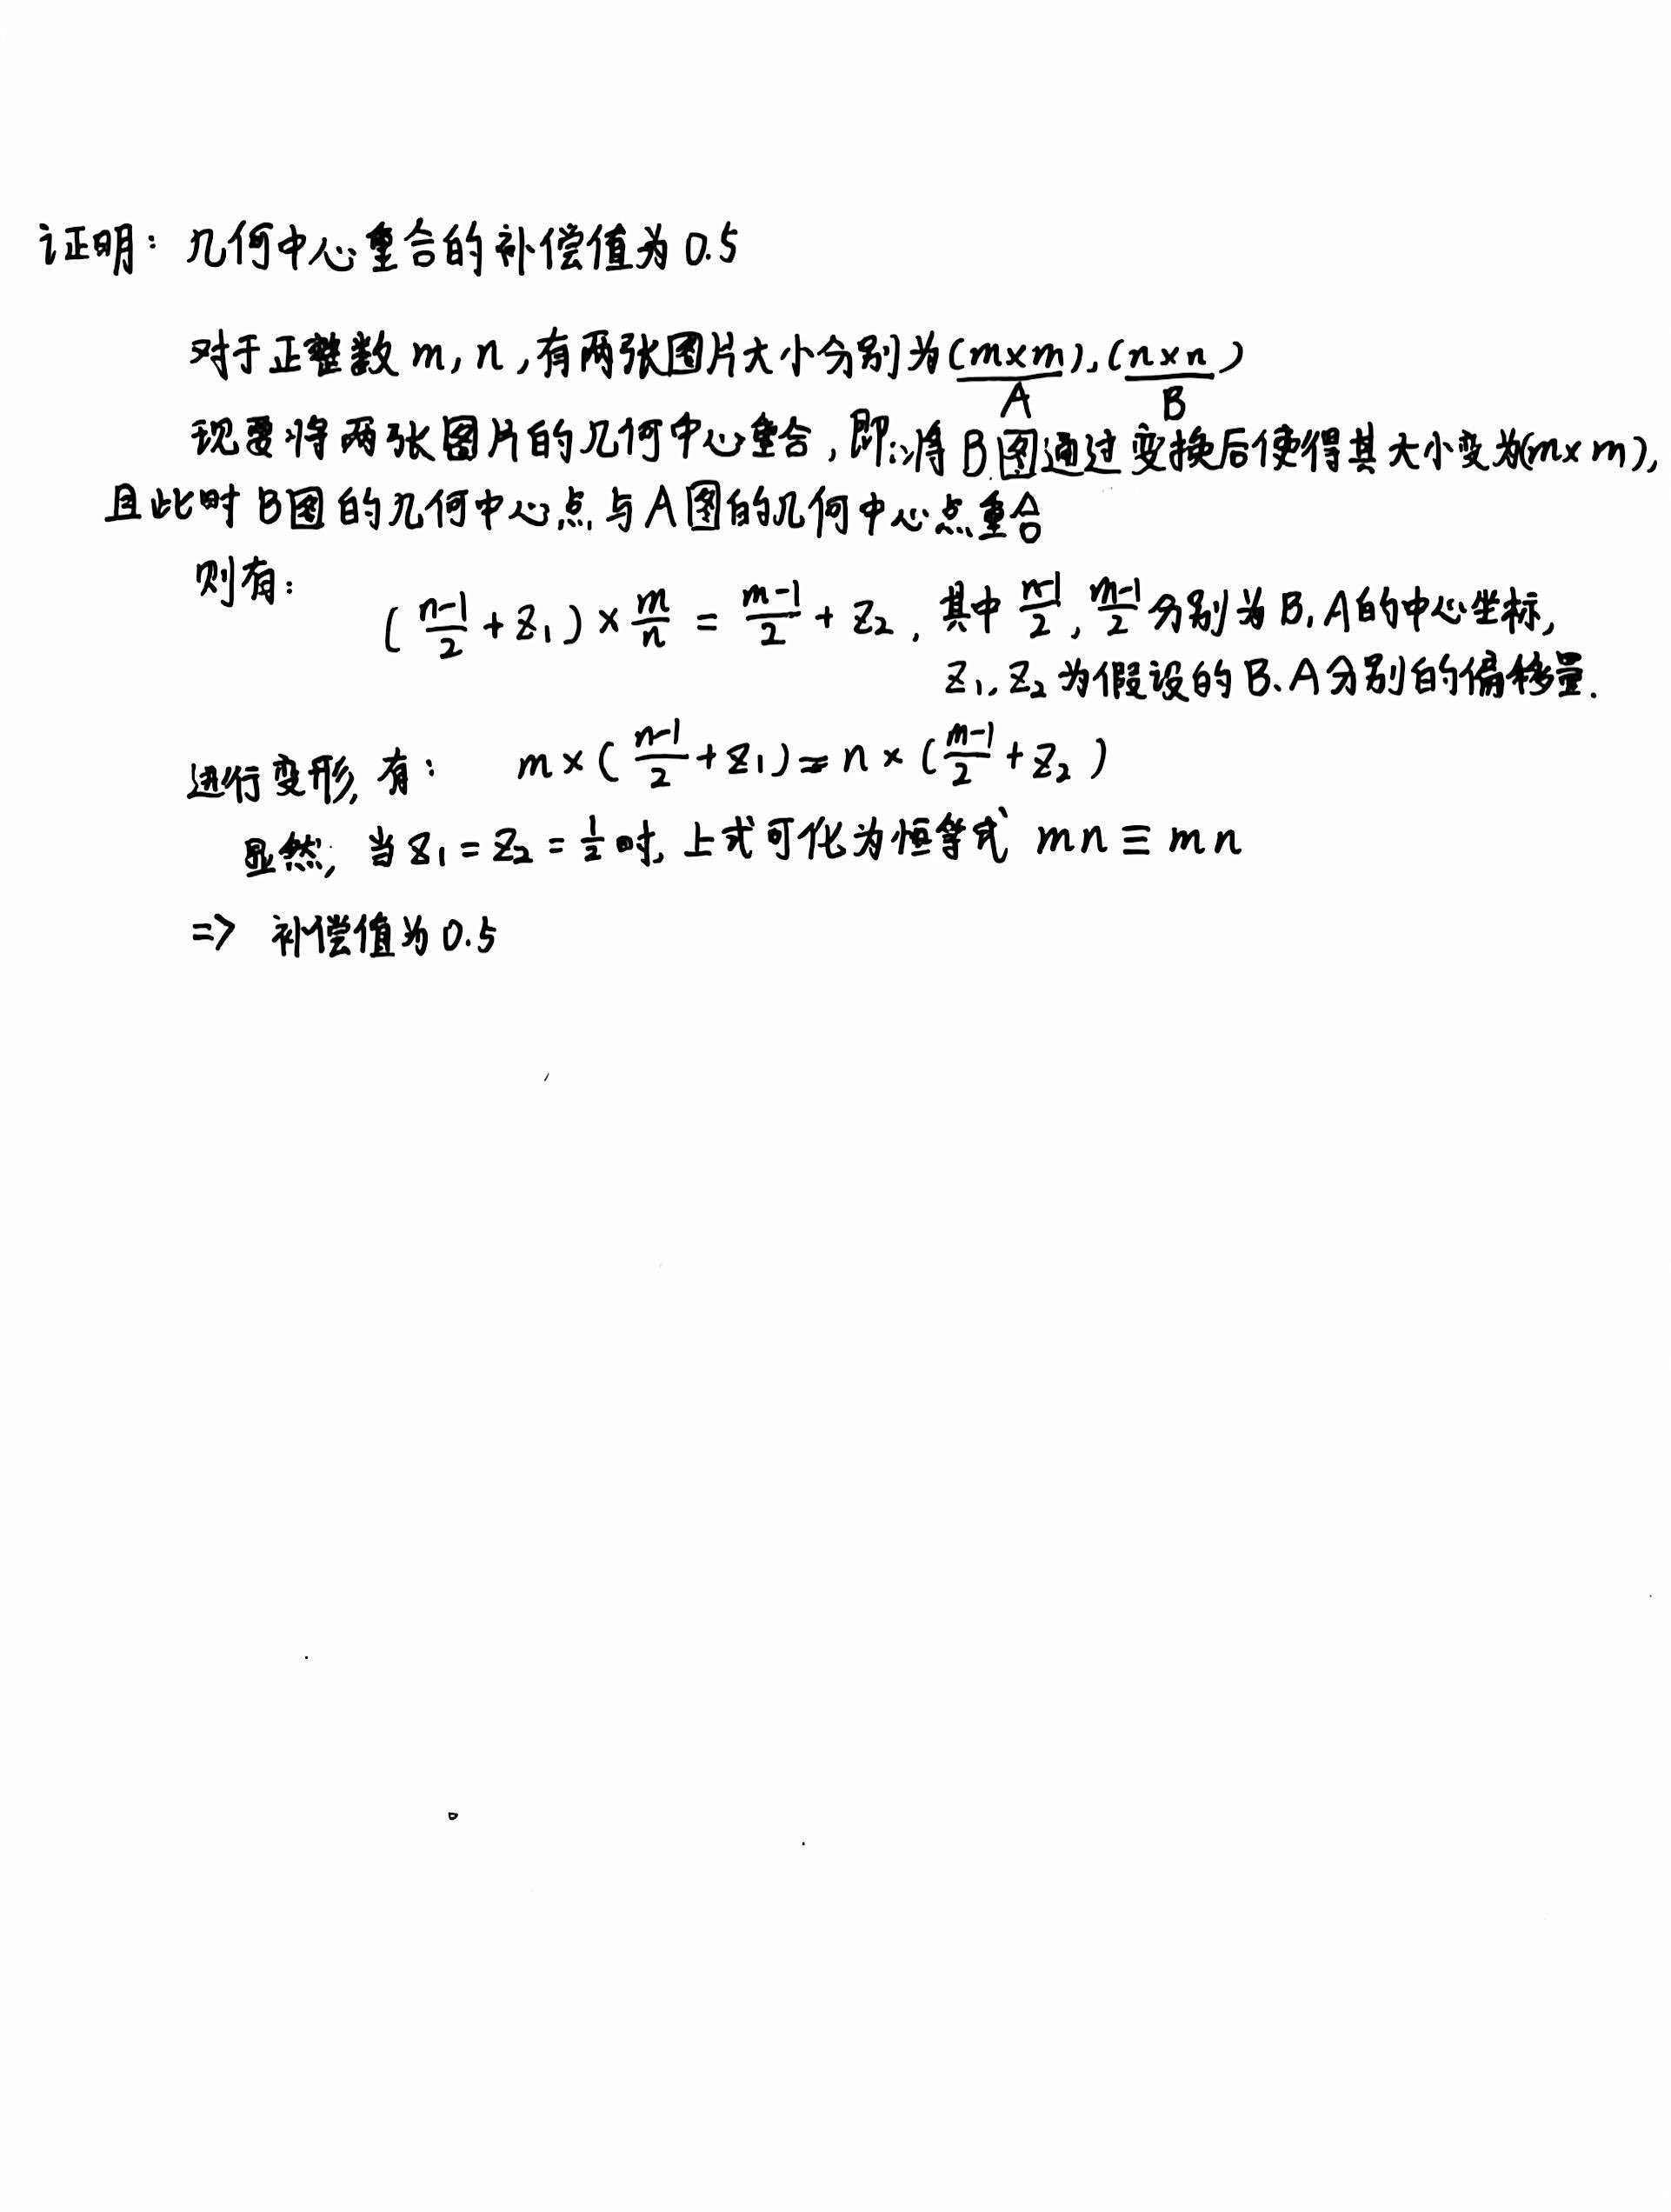 证明：几何中心重合的补偿值为0.5
对于正整数m,n,有两张图片大小分别为(m×m),(n×n)
A B
现要将两张图片的几何中心重合,即:将B图通过变换后使得其大小变为(m×m),
且此时B图的几何中心点与A图的几何中心点重合
则有:
(\frac{n-1}{2}+z₁)×\frac{m}{n}=\frac{m-1}{2}+z₂,其中\frac{n-1}{2},\frac{m-1}{2}分别为B,A的中心坐标,
z₁,z₂为假设的B、A分别的偏移量.
进行变形,有: m×(\frac{n-1}{2}+z₁)=n×(\frac{m-1}{2}+z₂)
显然,当z₁=z₂=\frac{1}{2}时,上式可化为恒等式 mn≡mn
=> 补偿值为0.5